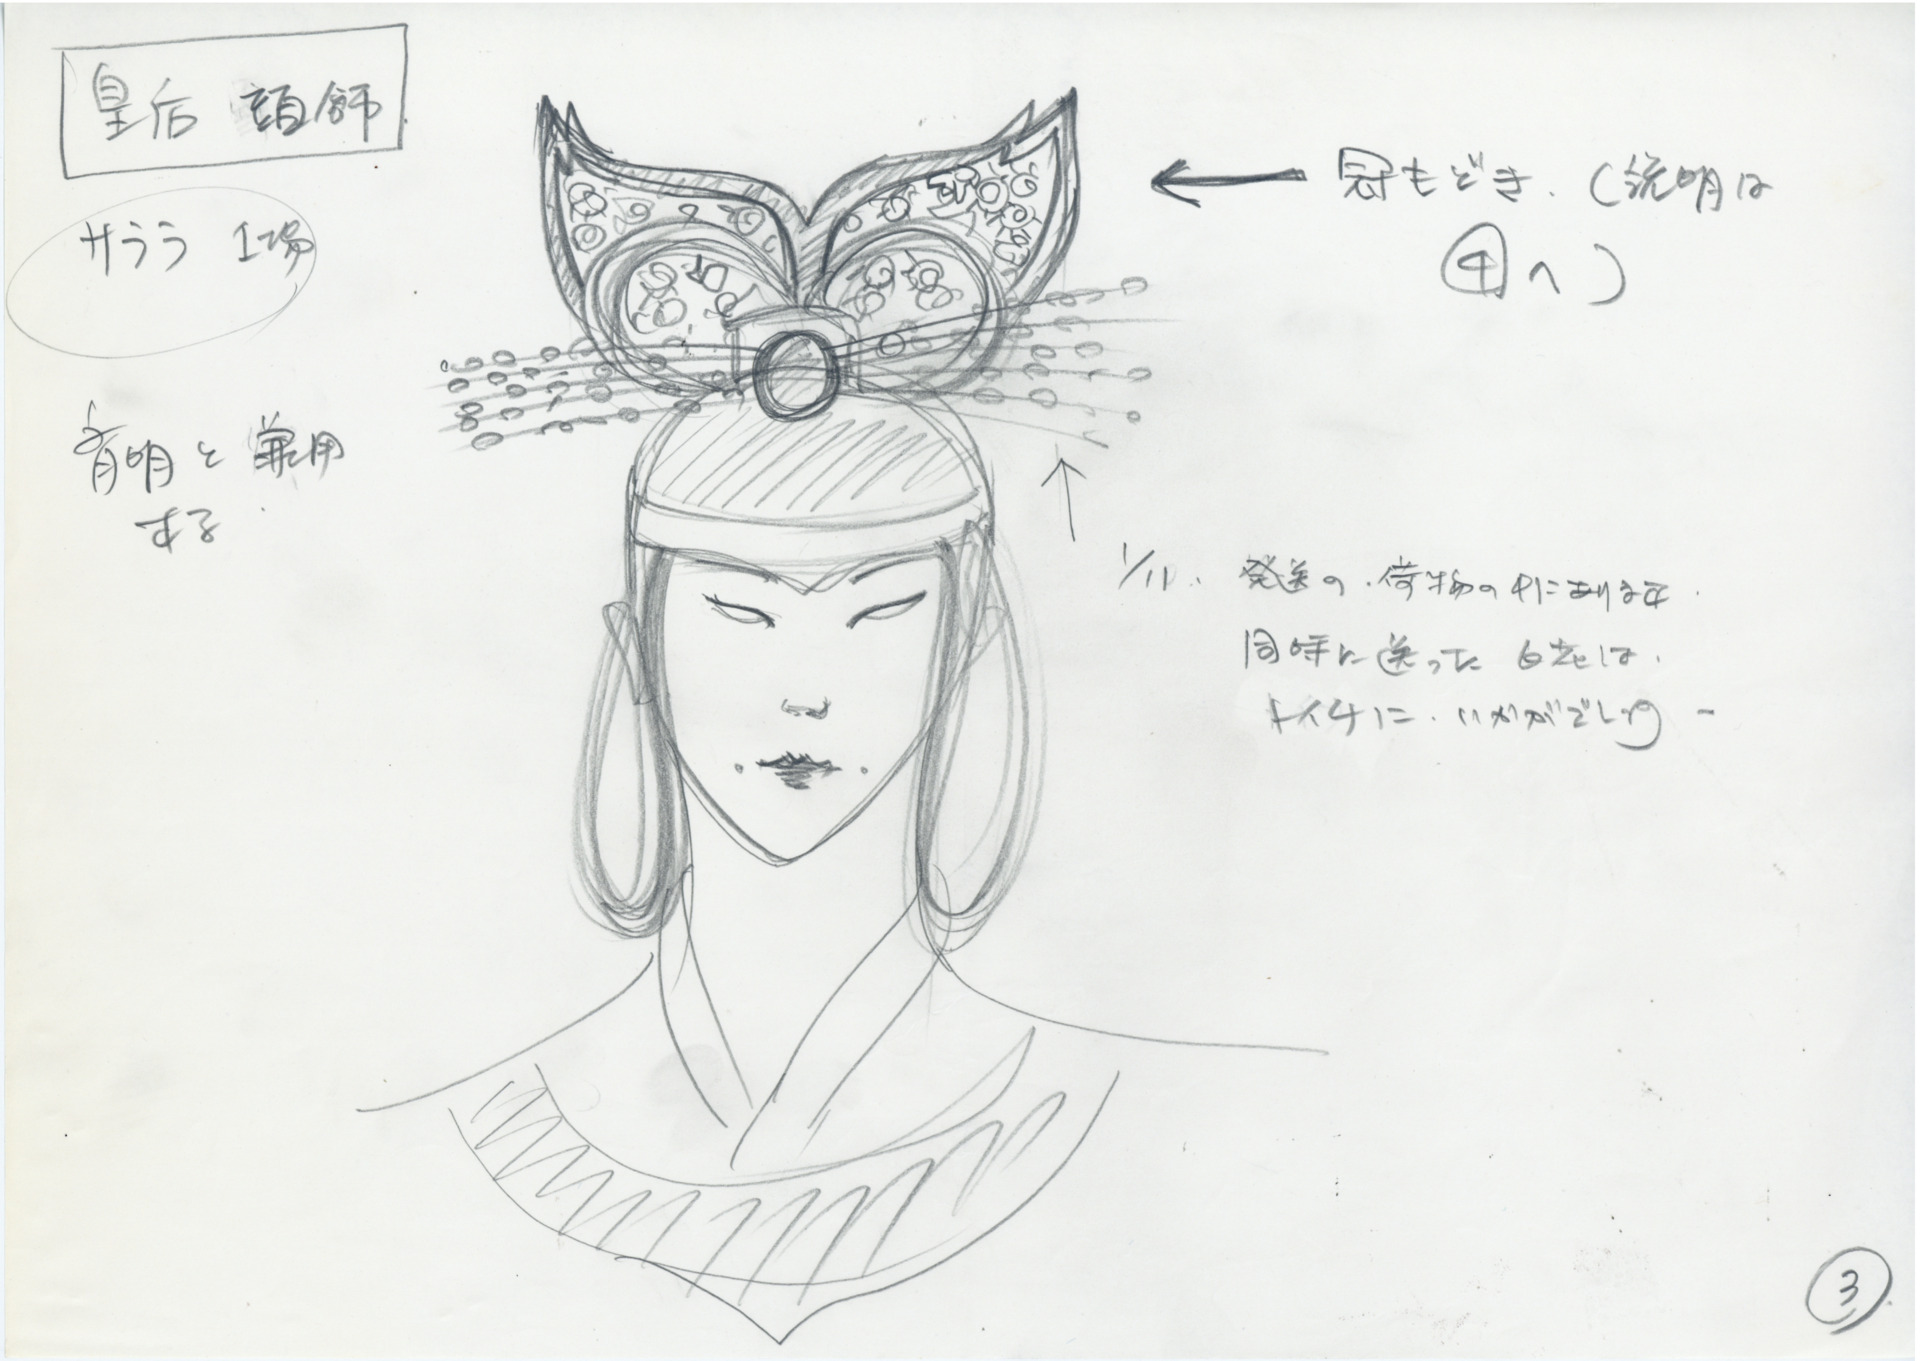 皇后 頭飾
サララ 工場
有明と兼用
する
冠もどき.(説明は
④へ)
1/11. 発送の.荷物の中にあります.
同時に送った 6花は.
トイチに.いかがでしょうー
③